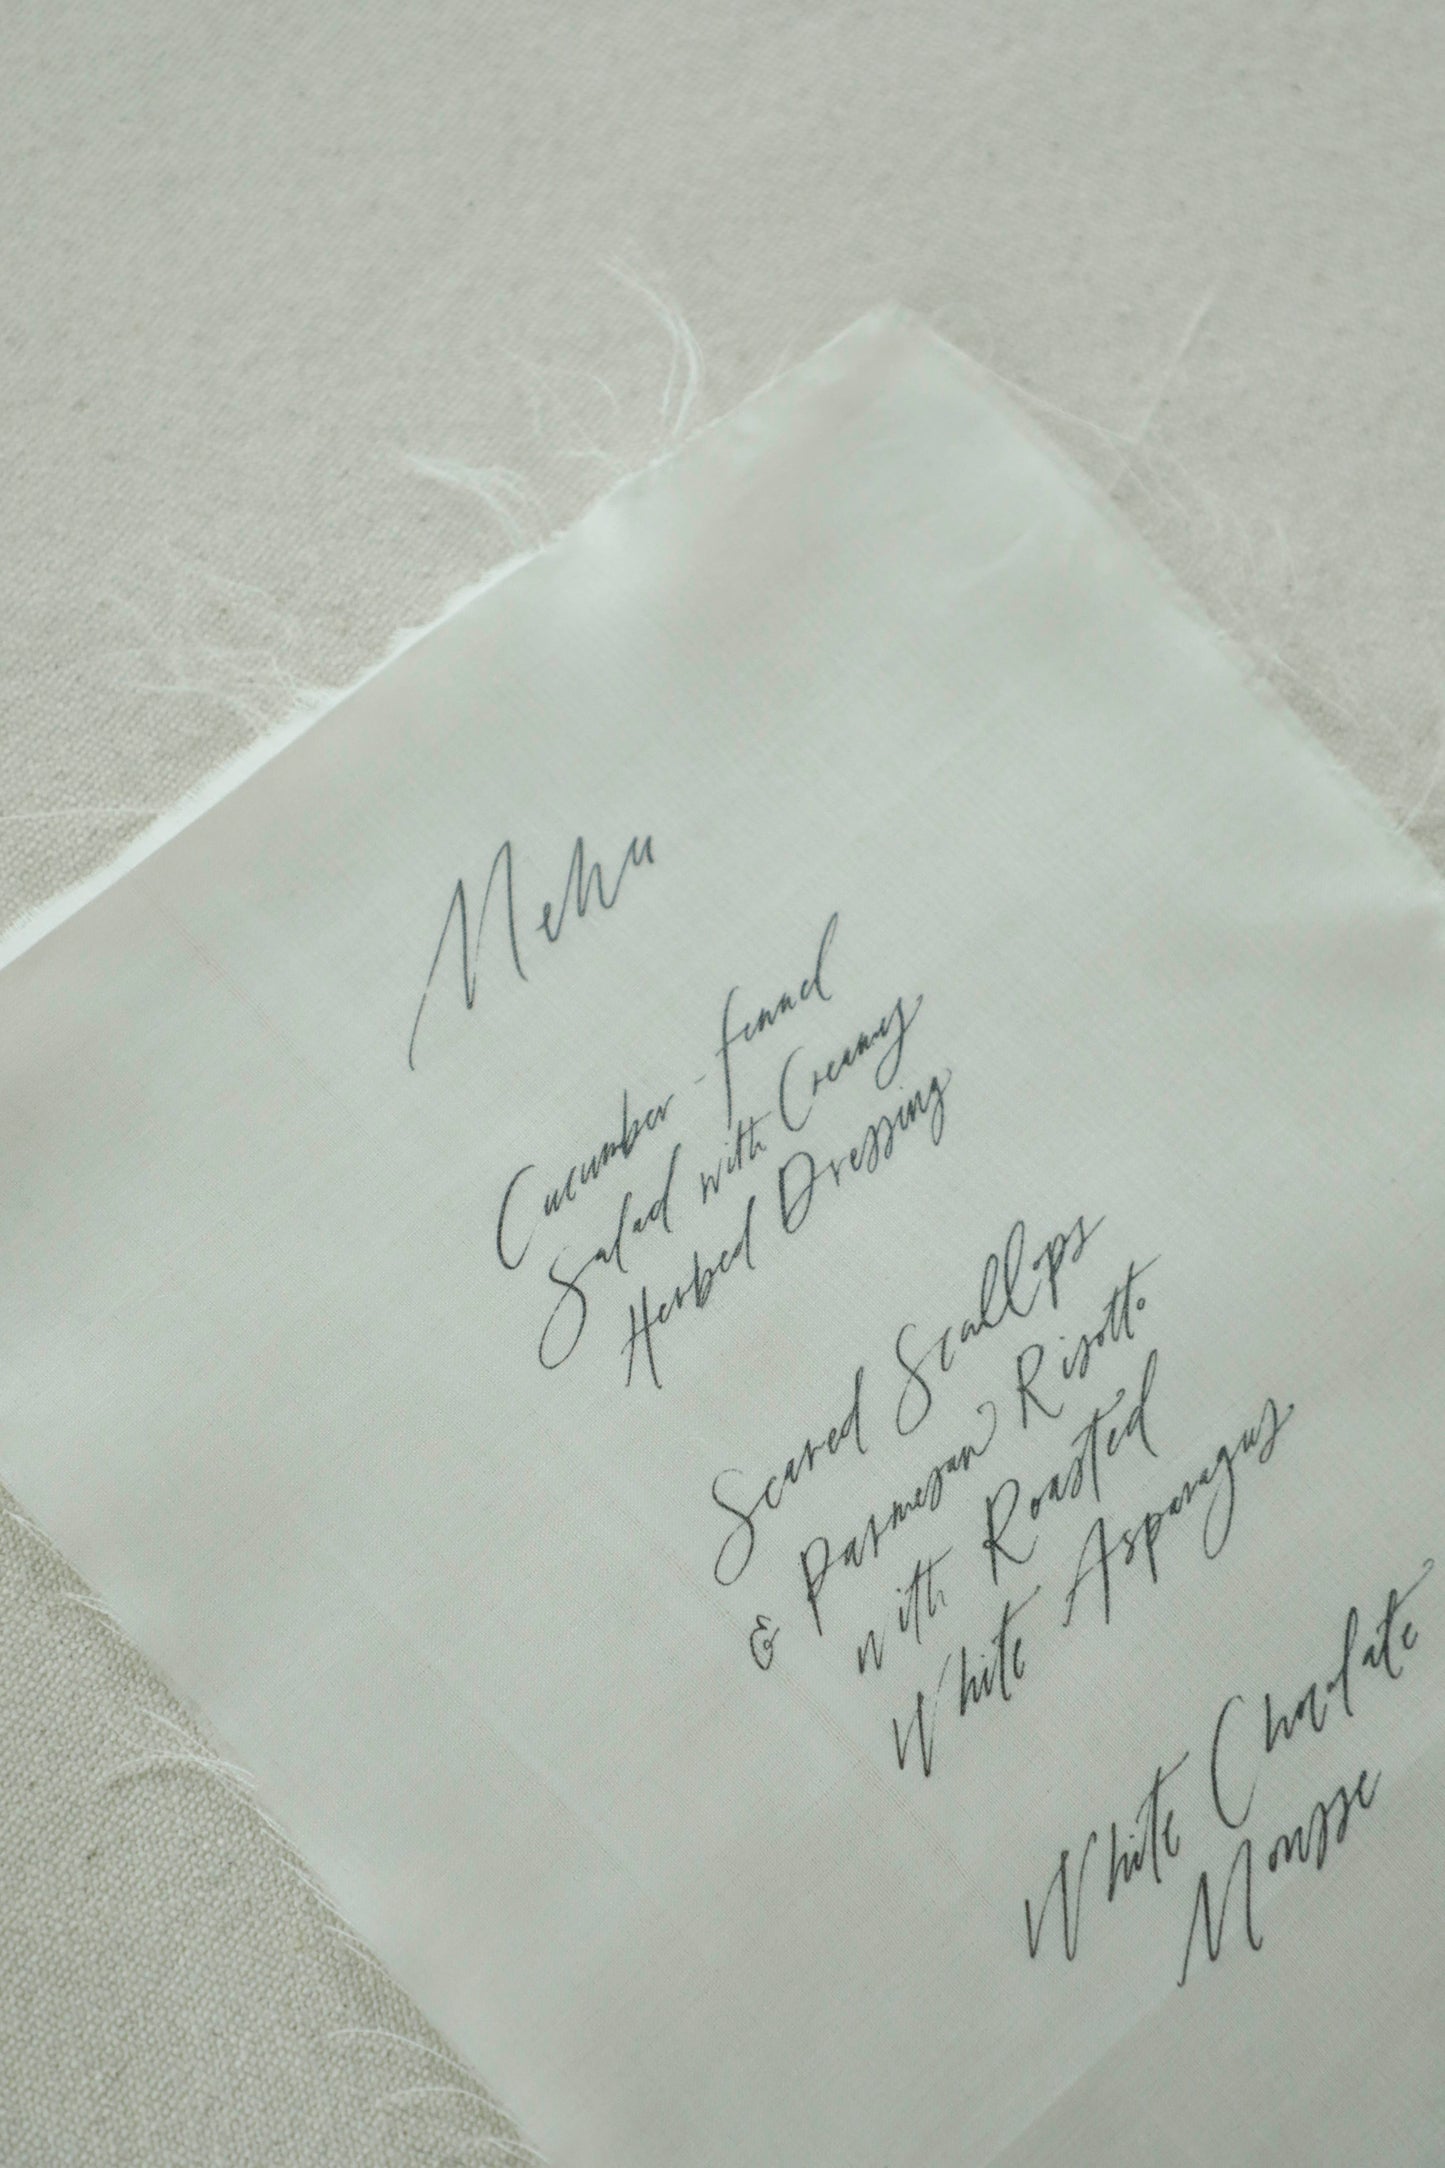 Menu
Cucumber-fennel
Salad with Creamy
Herbed Dressing
Seared Scallops
& Parmesan Risotto
with Roasted
White Asparagus
White Chocolate
Mousse